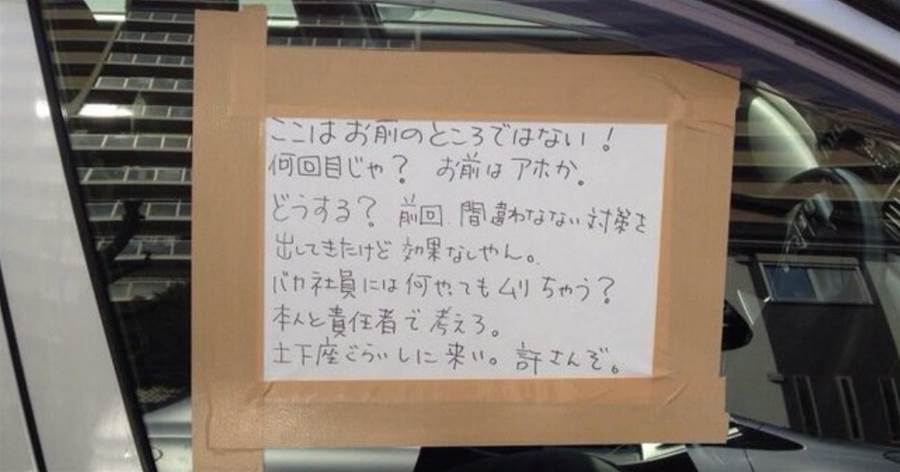 ここはお前のところではない！
何回目じゃ？ お前はアホか。
どうする？ 前回 間違わなない対策を
出してきたけど 効果なしやん。
バカ社員には何やってもムリちゃう？
本人と責任者で考えろ。
土下座ぐらいしに来い。許さんぞ。